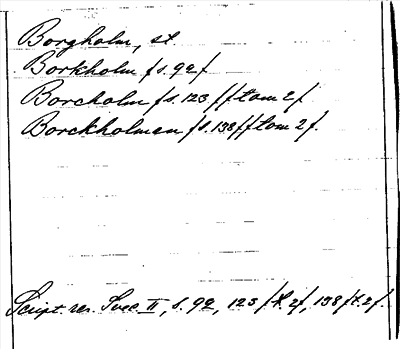 Borgholm, st.
Borkholm /s. 92/
Borcholm /s. 123/ /tom 2/
Borckholman /s. 138/ /tom 2/.
Script. rer. Svec. II, s. 92, 123 /t. 2/, 138 /t. 2/.